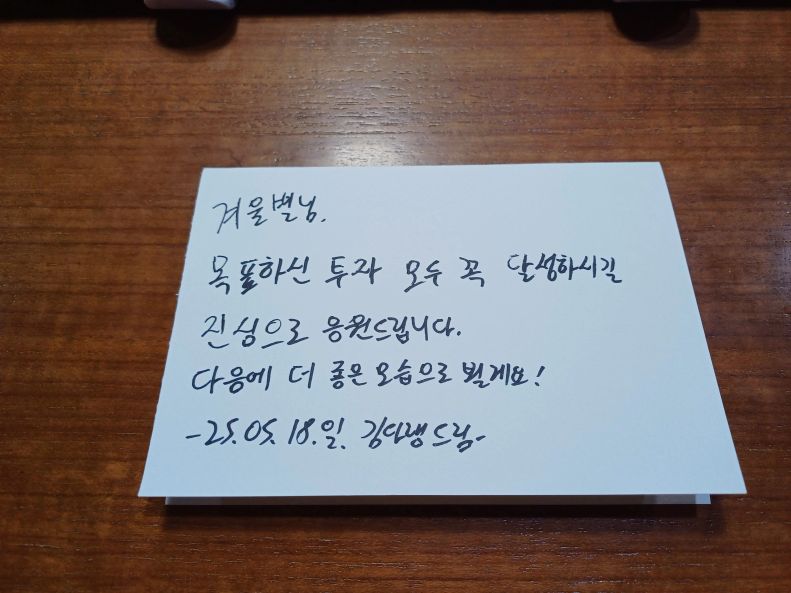 겨울별님.
목표하신 투자 모두 꼭 달성하시길
진심으로 응원드립니다.
다음에 더 좋은 모습으로 뵐게요!
-25.05.18.일. 드림-